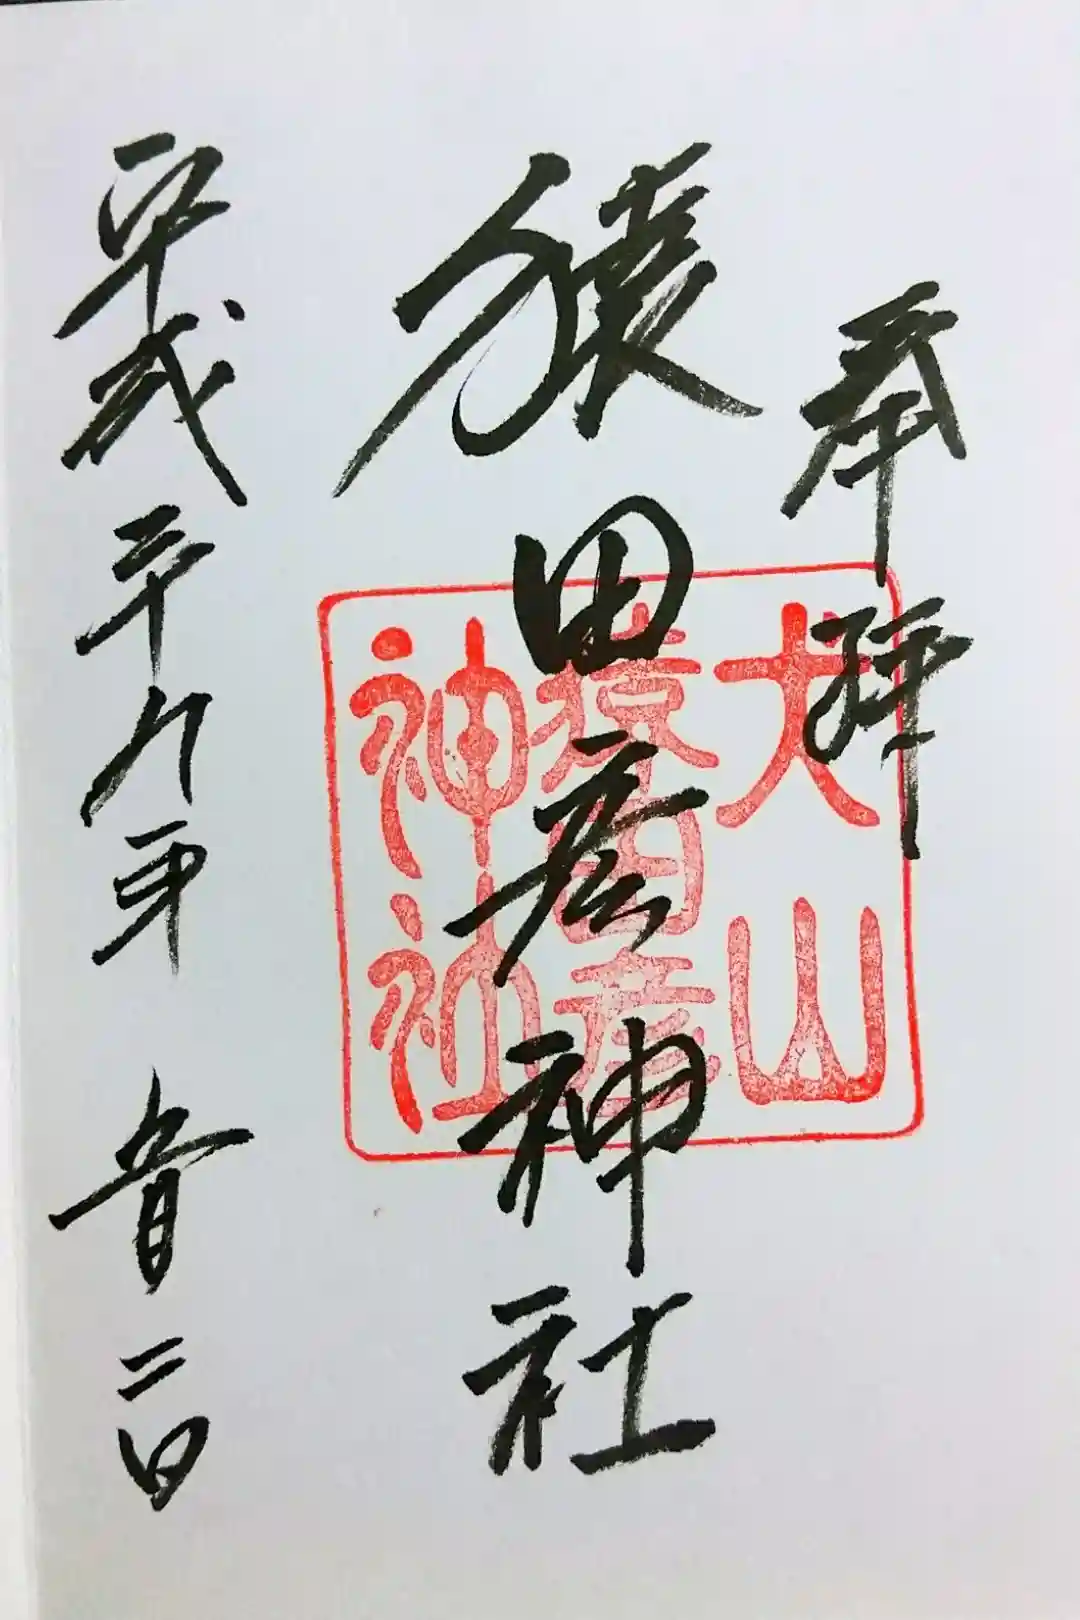 奉拝
猿田彦神社
犬山
猿田彦
神社
平成二十九年 月二日